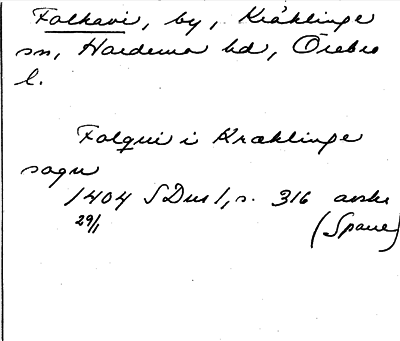 Falkavi, by, Kräklinge
sn, Hardemo hd, Örebro
l.
Falqui i Kræklinge
sogn
1404 SDns 1, s. 316 avskr
29/1 (Spane)